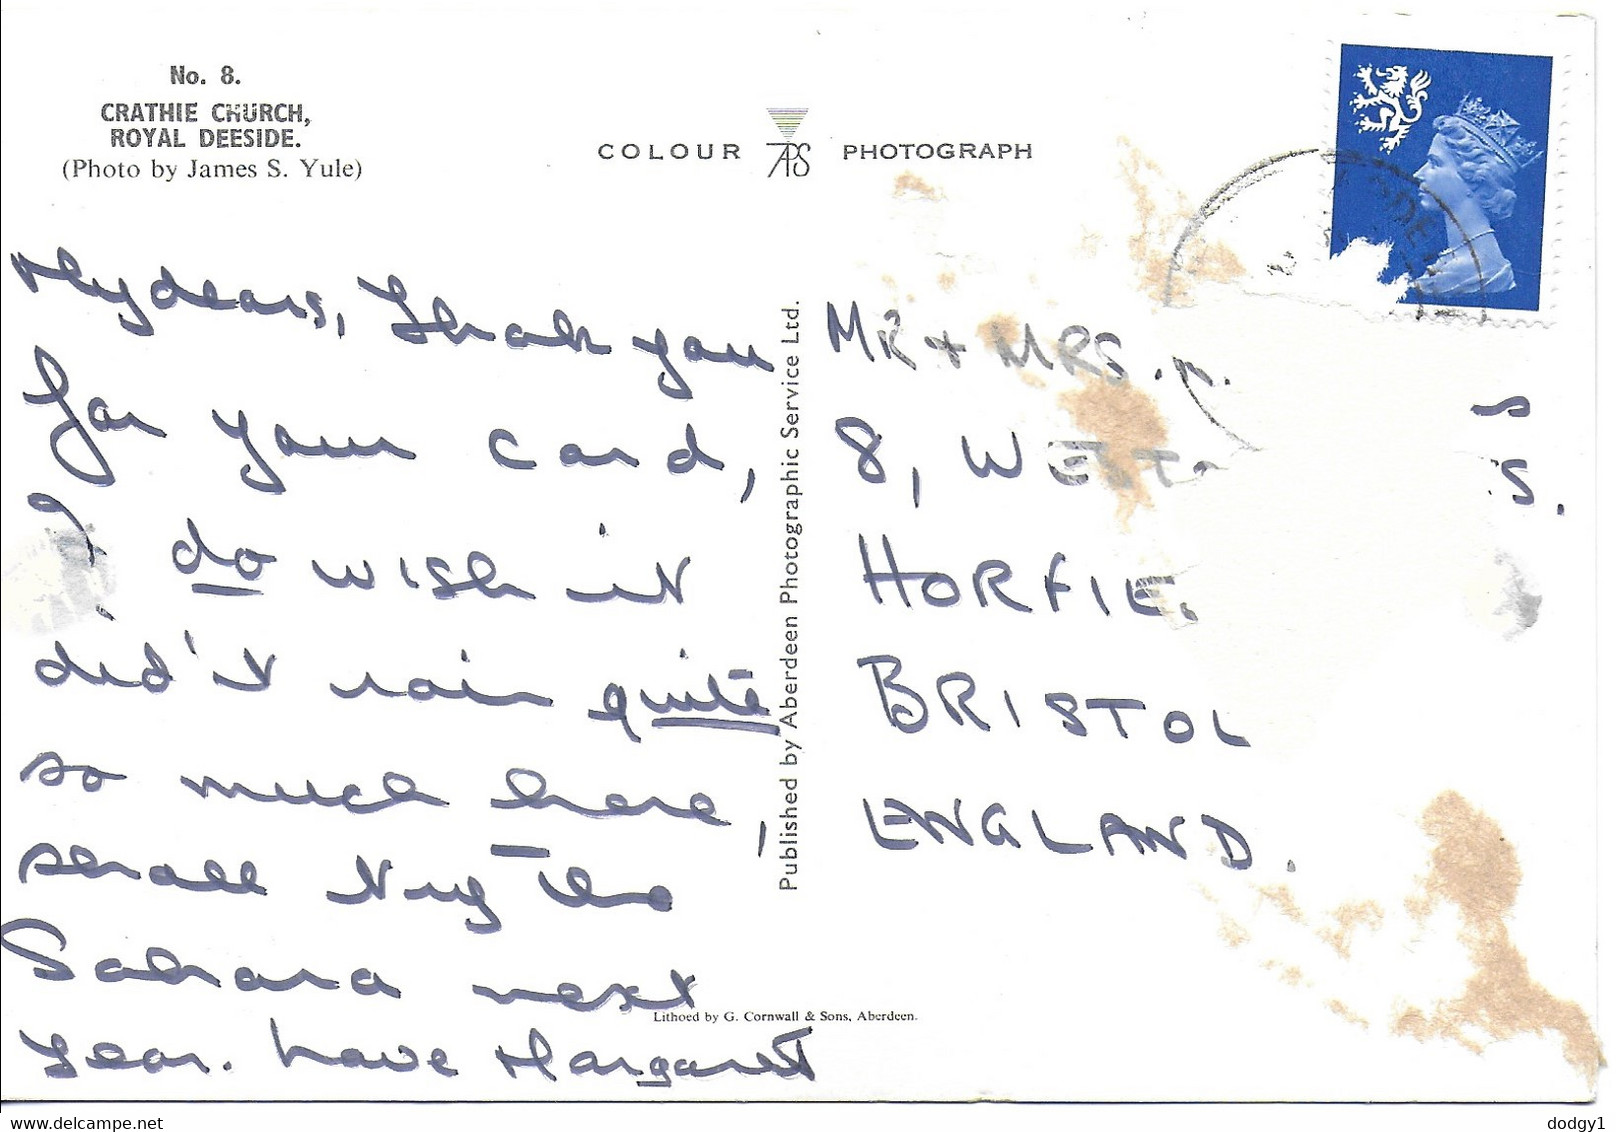 No. 8.
CRATHIE CHURCH,
ROYAL DEESIDE.
(Photo by James S. Yule)
COLOUR APS PHOTOGRAPH
My dears, Thank you
for your card,
I do wish it
did't rain quite
so much here,
shall try the
Sahara next
year. have Margaret
Published by Aberdeen Photographic Service Ltd.
MR + MRS.
S
8, WEST S.
HORFIE
BRISTOL
ENGLAND.
Lithoed by G. Cornwall & Sons, Aberdeen.
www.delcampe.net
dodgy1